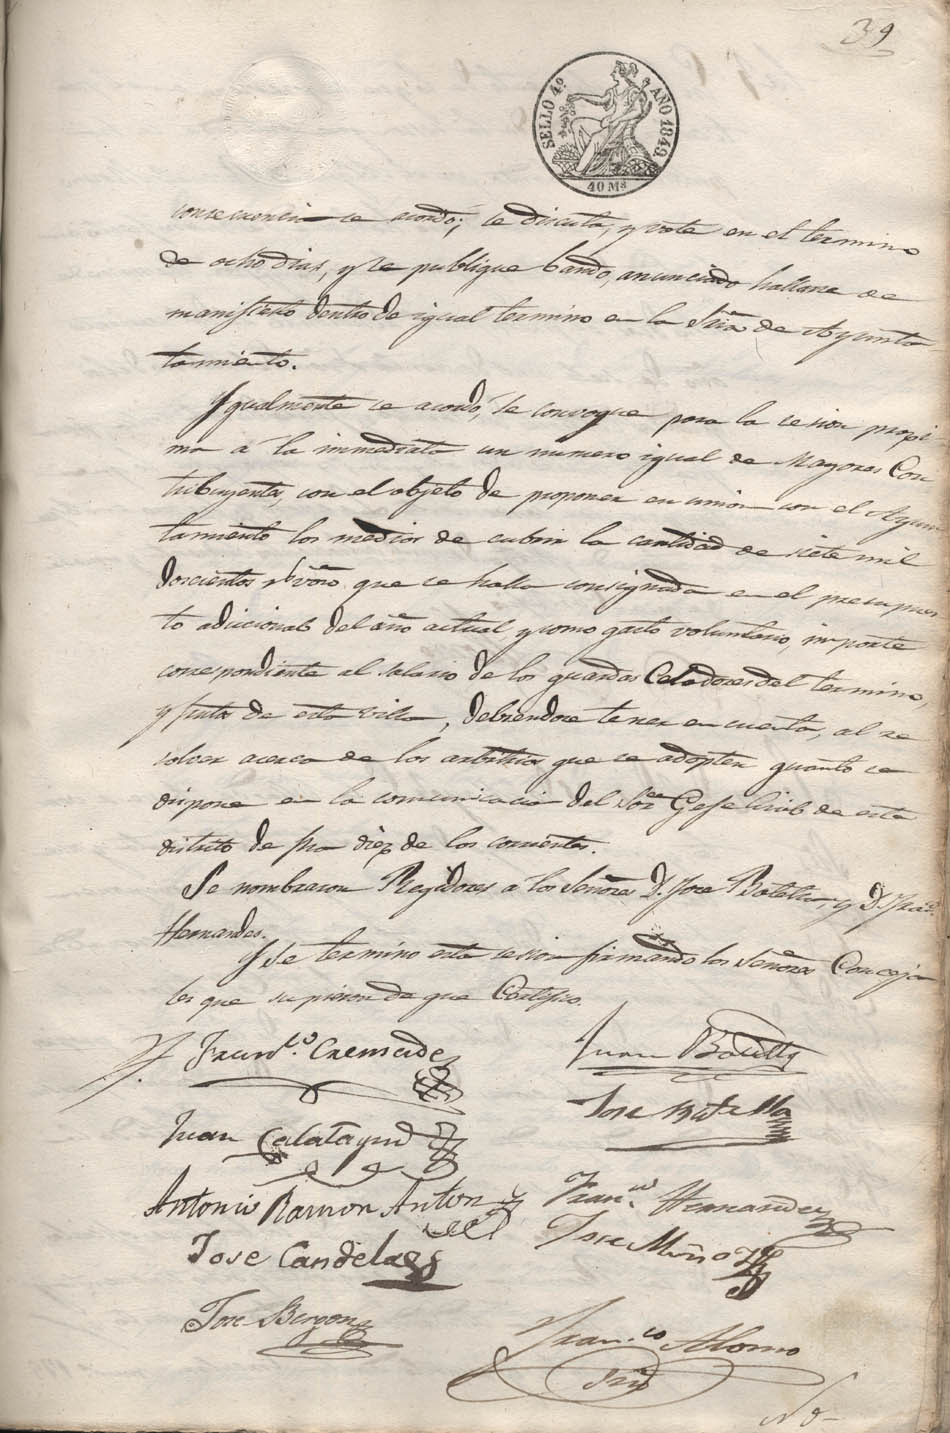 39
SELLO 4º AÑO 1849.
40 Ms
consecuencia se acordó; se discuta, y vote en el termino
de ocho dias, y se publique bando, anunciando hallarse de
manifiesto dentro de igual termino en la Sria de Ayunta
tamiento.
Igualmente se acordó, se convoque para la sesion procsi
ma á la immediata un numero igual de Mayores Con
tribuyentes, con el objeto de proponer en union con el Ayun
tamiento los medios de cubrir la cantidad de siete mil
doscientos rs von que se halla consignada en el presupues
to adicional del año actual, y como gasto voluntario, importe
correspondiente al salario de los guardas Celadores del termino,
y de esta villa, debiendose tener en cuenta, al re
solver acerca de los arbitrios que se adopten quanto se
dispone en la comunicacion del Sor Gefe Civil de este
distrito de fha diez de los corrientes.
Se nombraron Regidores a los Señores D. Jose Botella, y D. Franco
Hernandes.
Y se termino esta sesion firmando los Señores Conceja
les que supieron de que Certifico.
Franco Cremades
Juan Botella
Juan Calatayud
Jose Botella
Antonio Ramon Anton
Franco Hernandez
Jose Candela
Jose Muñoz
Jose Bergon
Franco Alonso
Srio